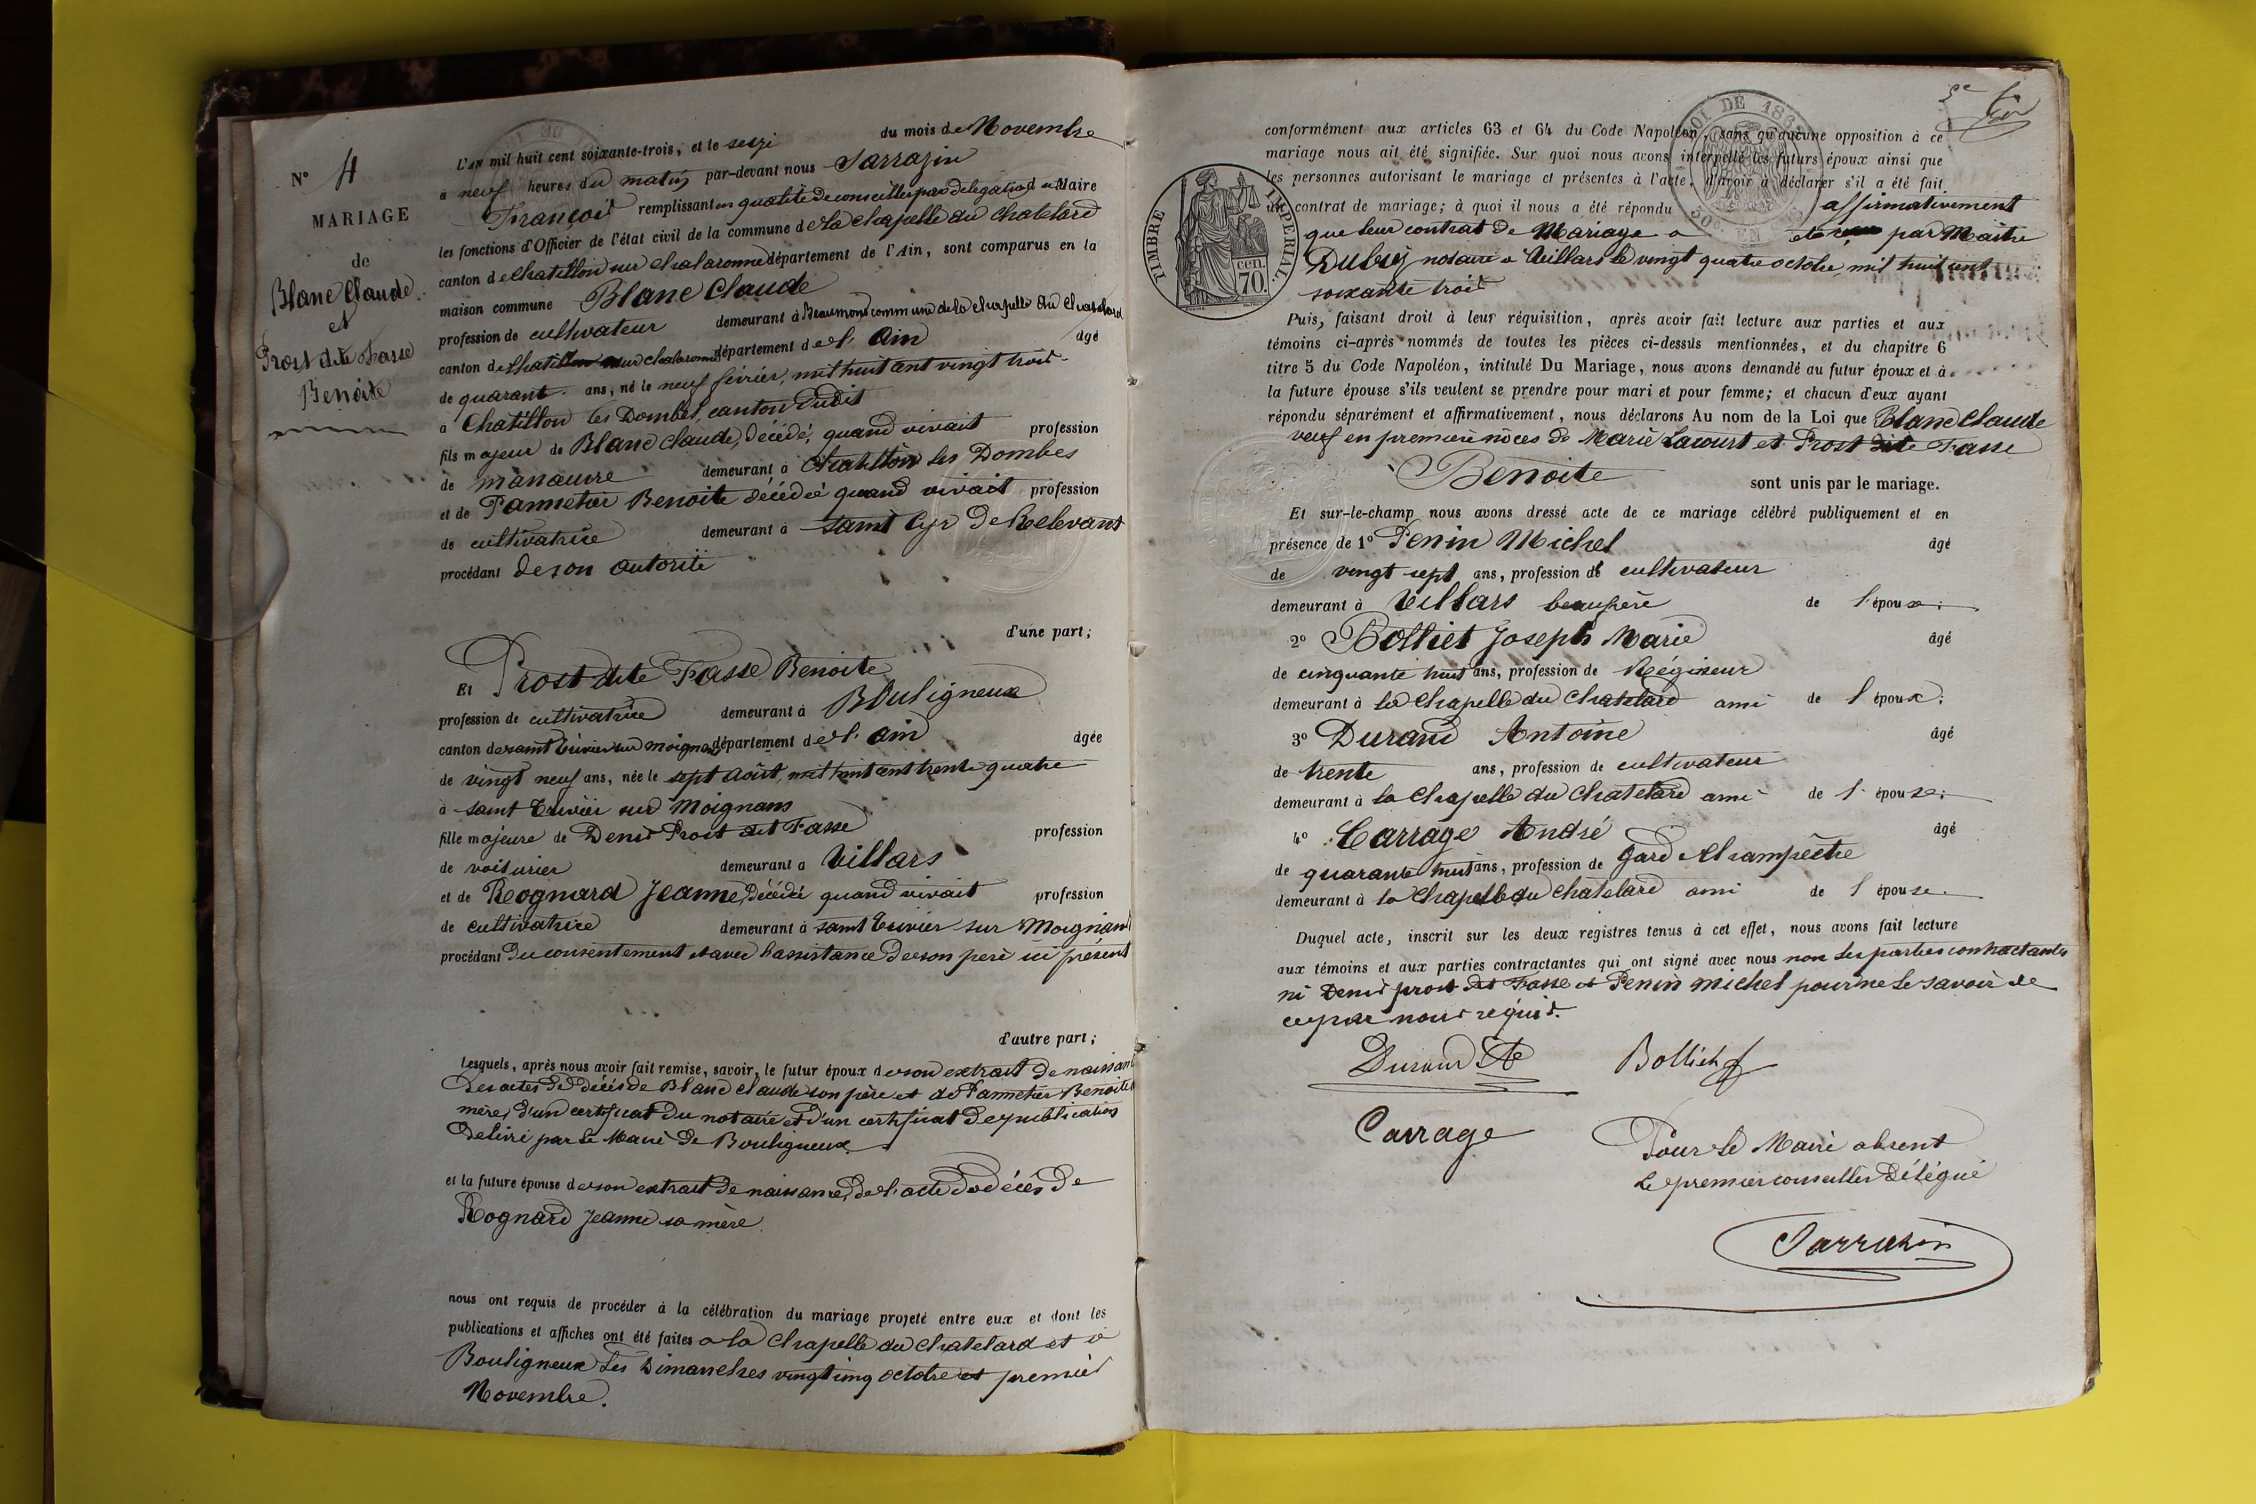 N° 4
MARIAGE
de
Blanc Claude
et
Prost dite Fasse
Benoite
L'an mil huit cent soixante-trois, et le seize du mois de Novembre
à neuf heures du matin par-devant nous Sarrazin
François remplissant en qualité de conseiller par délégation du Maire
les fonctions d'Officier de l'état civil de la commune de la Chapelle du Chatelard
canton de Chatillon sur Chalaronne département de l'Ain, sont comparus en la
maison commune Blanc Claude
profession de cultivateur demeurant à Beaumont commune de la Chapelle du Chatelard
canton de Chatillon sur Chalaronne département de l'Ain âgé
de quarante ans, né le neuf février, mil huit cent vingt trois
à Chatillon les Dombes, canton dudit
fils majeur de Blanc Claude, décédé, quand vivait profession
de manœuvre demeurant à Chatillon les Dombes
et de Pannetier Benoite décédée quand vivait profession
de cultivatrice demeurant à saint Cyr de Relevant
procédant de son autorité
d'une part;
Et Prost dite Fasse Benoite
profession de cultivatrice demeurant à Bouligneux
canton de saint Trivier sur moignans département de l'Ain âgée
de vingt neuf ans, née le sept Août, mil huit cent trente quatre
à saint Trivier sur Moignans
fille majeure de Denis Prost dit Fasse profession
de voiturier demeurant à Villars
et de Rognard Jeanne, décédée quand vivait profession
de cultivatrice demeurant à saint Trivier sur Moignans
procédant du consentement et avec l'assistance de son père ici présent
d'autre part;
Lesquels, après nous avoir fait remise, savoir, le futur époux de son extrait de naissance
des actes de décès de Blanc Claude son père et de Pannetier Benoite sa
mère, d'un certificat du notaire et d'un certificat de publication
délivré par le Maire de Bouligneux
et la future épouse de son extrait de naissance, de l'acte de décès de
Rognard Jeanne sa mère
nous ont requis de procéder à la célébration du mariage projeté entre eux et dont les
publications et affiches ont été faites à la Chapelle du Chatelard et à
Bouligneux les Dimanches vingt cinq octobre et premier
Novembre.
conformément aux articles 63 et 64 du Code Napoléon, sans qu'aucune opposition à ce
mariage nous ait été signifiée. Sur quoi nous avons interpellé les futurs époux ainsi que
les personnes autorisant le mariage et présentes à l'acte, d'avoir à déclarer s'il a été fait
un contrat de mariage; à quoi il nous a été répondu affirmativement
que leur contrat de Mariage a été reçu par Maître
notaire à Villars le vingt quatre octobre mil huit cent
soixante trois
TIMBRE IMPERIAL.
cen.
70.
Puis, faisant droit à leur réquisition, après avoir fait lecture aux parties et aux
témoins ci-après nommés de toutes les pièces ci-dessus mentionnées, et du chapitre 6
titre 5 du Code Napoléon, intitulé Du Mariage, nous avons demandé au futur époux et à
la future épouse s'ils veulent se prendre pour mari et pour femme; et chacun d'eux ayant
répondu séparément et affirmativement, nous déclarons Au nom de la Loi que Blanc Claude
veuf en première noces de Marie Lacourt et Prost dite Fasse
Benoite sont unis par le mariage.
Et sur-le-champ nous avons dressé acte de ce mariage célébré publiquement et en
présence de 1° Penin Michel âgé
de vingt sept ans, profession de cultivateur
demeurant à Villars beaupère de l'époux;
2° Bolliet Joseph Marie âgé
de cinquante huit ans, profession de Régisseur
demeurant à la Chapelle du Chatelard ami de l'époux;
3° Durand Antoine âgé
de trente ans, profession de cultivateur
demeurant à la Chapelle du Chatelard ami de l'épouse;
4° Carrage André âgé
de quarante huit ans, profession de gard champêtre
demeurant à la Chapelle du Chatelard ami de l'épouse.
Duquel acte, inscrit sur les deux registres tenus à cet effet, nous avons fait lecture
aux témoins et aux parties contractantes qui ont signé avec nous non les parties contractantes
ni Denis prost dit Fasse et Penin Michel pour ne le savoir de
ce par nous réquis.
Durand Ate Bolliet
Carrage
Pour le Maire absent
le premier conseiller Délégué
Sarrazin